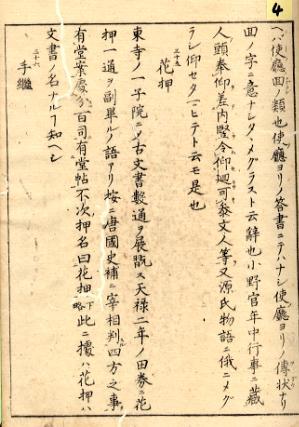 4
ヘハ使廳回ノ類也使廳ヨリノ答書ニテハナシ使廳ヨリノ傳状ナリ
回ノ字ニ意ナシタヽメグラスト云辞也小野宮年中行事ニ藏
人頭奉仰差内竪令仰廻可参文人等又源氏物語ニ俄ニメグ
ラシ仰セタマヒテト云モ是也
三十五
花押
東寺ノ一子院ニノ古文書数通ヲ展翫ス天禄二年ノ田券ニ花
押一通ヲ副畢ルノ語アリ按ニ唐國史補ニ宰相判四方之事
有堂案處分百司有堂帖不次押名曰花押下略此ニ據ハ花押ハ
文書ノ名ナルヿ知ヘシ
三十六
手繼